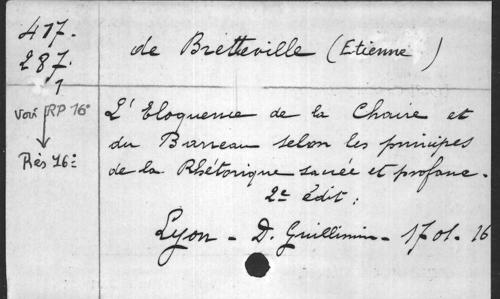 417.
287.
1
de Bretteville (Etienne)
voir RP 16°
Rés 16°
L'Eloquence de la Chaire et
du Barreau selon les principes
de la Rhétorique sacrée et profane.
2e édit :
Lyon - D. Guillimin - 1701. 16